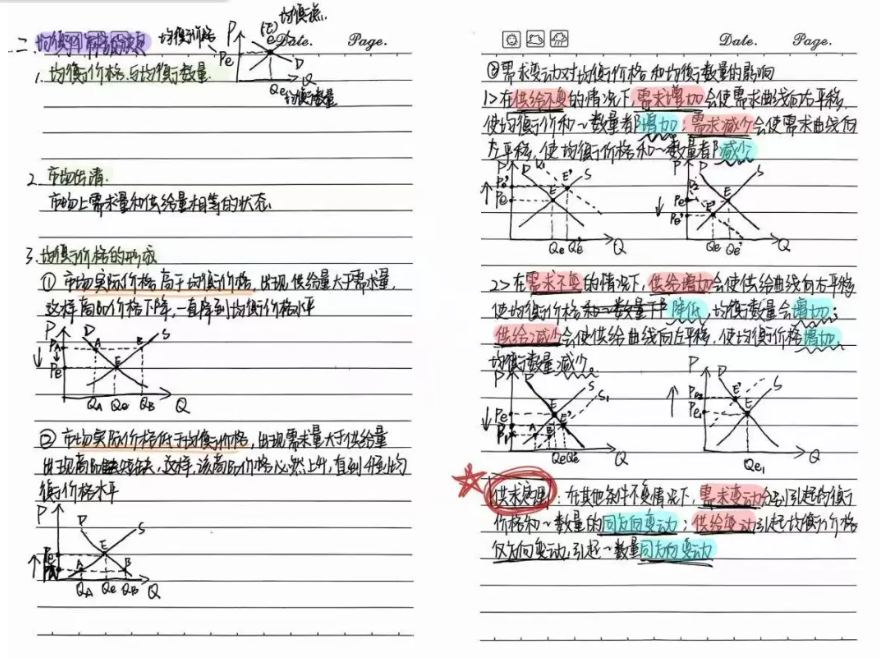 均衡点
二、均衡价格的决定 均衡价格 P (E) Date. Page.
Pe e D
1. 均衡价格与均衡数量 Qe Q
均衡数量
2. 市场出清
市场上需求量和供给量相等的状态
3. 均衡价格的形成
① 市场实际价格高于均衡价格,出现供给量大于需求量,
这样商品价格下降,一直降到均衡价格水平
P D S
P₁ A B
Pe E
QA Qe QB Q
② 市场实际价格低于均衡价格,出现需求量大于供给量
出现商品短缺,这样,该商品价格必然上升,直到均
衡价格水平
P D S
Pe E
A B
QA Qe QB Q
Date. Page.
③需求变动对均衡价格和均衡数量的影响
1>在供给不变的情况下,需求增加会使需求曲线向右平移,
使均衡价和~数量都增加;需求减少会使需求曲线向
左平移,使均衡价格和~数量都减少
P D S P D S
Pe' E' Pe E
Pe E Pe' E'
Qe Qe' Q Qe Qe' Q
2>在需求不变的情况下,供给增加会使供给曲线向右平移
使均衡价格和~数量下降低,均衡数量会增加;
供给减少会使供给曲线向左平移,使均衡价格增加,
均衡数量减少
P D S S₁ P S
Pe E E' Pe₂ E'
P₁ A B Pe₁ E
Qe Qe' Q Qe₁ Q
供求定理:在其他条件不变情况下,需求变动分别引起均衡
价格和~数量的同方向变动;供给变动引起均衡价格
反方向变动,引起~数量同方向变动